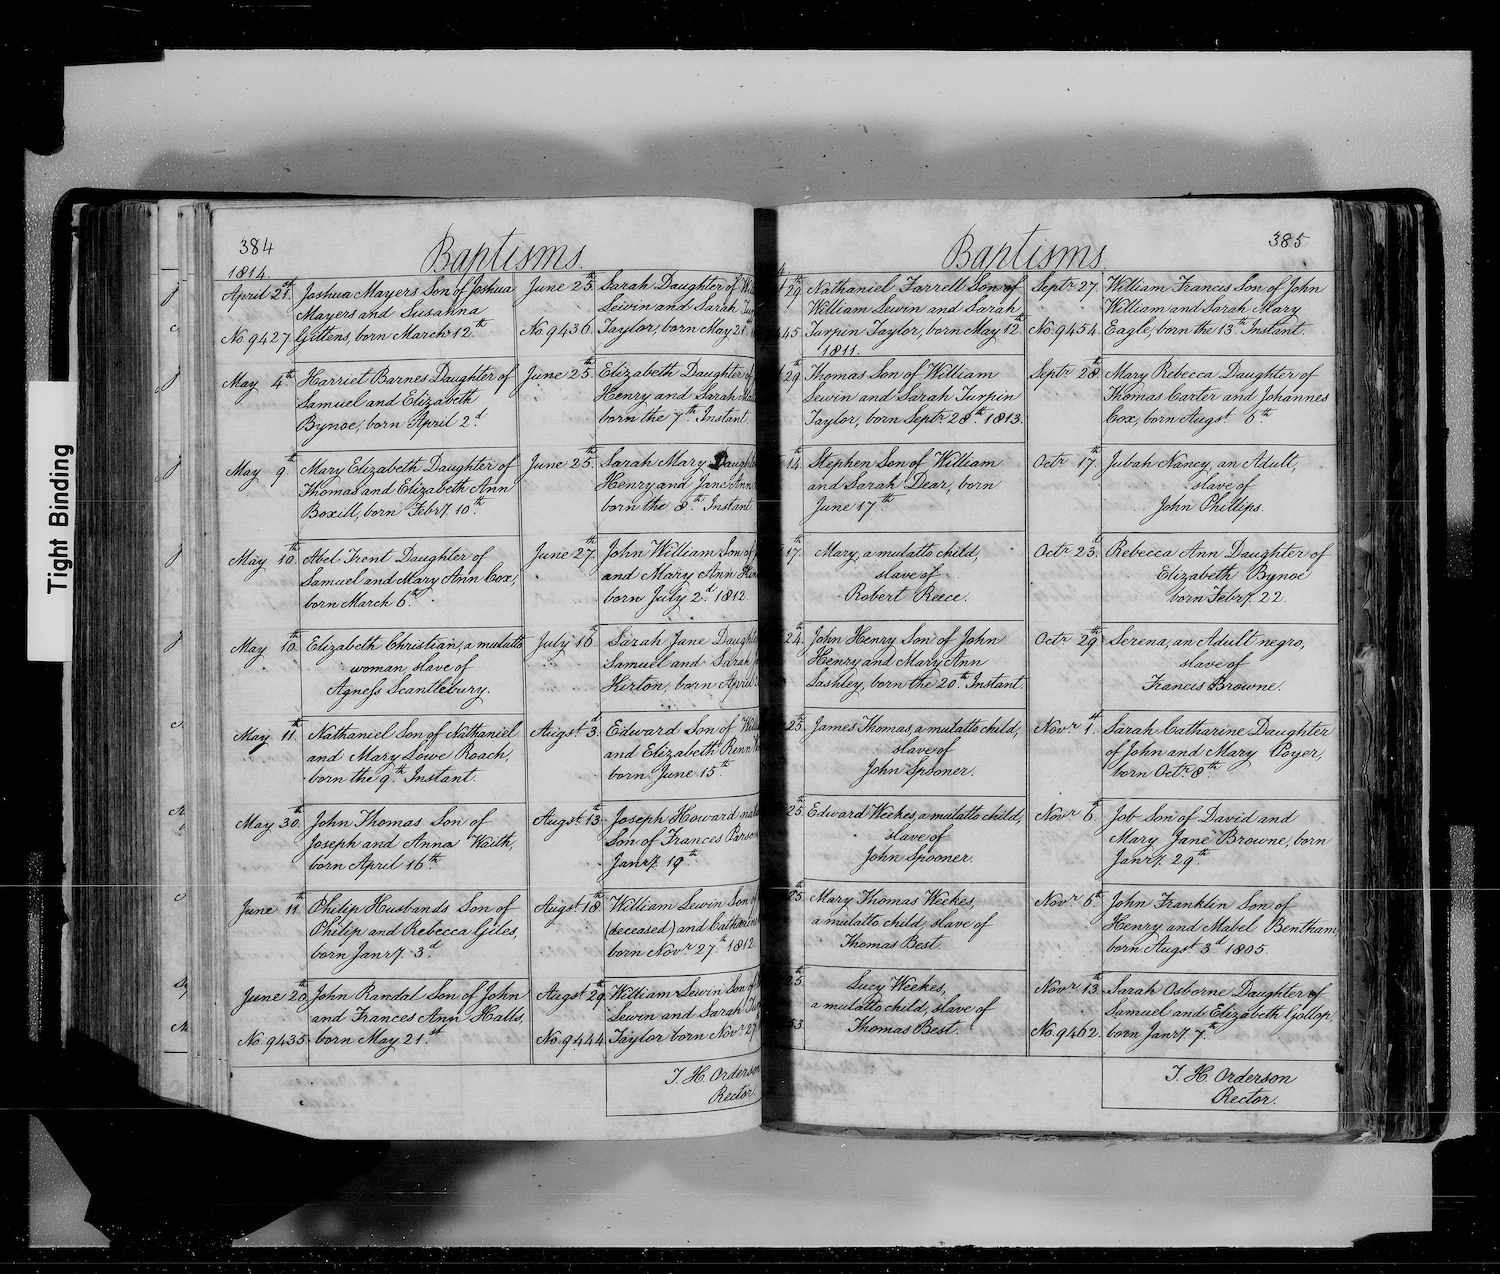 Tight Binding
384
Baptisms.
1814.
April 21st
No. 9427
Joshua Mayers Son of Joshua
Mayers and Susanna
Gittens, born March 12th
May 4th
Harriet Barnes Daughter of
Samuel and Elizabeth
Bynoe, born April 2d
May 9th
Mary Elizabeth Daughter of
Thomas and Elizabeth Ann
Boxill, born Febry. 10th
May 10th
Abel Trent Daughter of
Samuel and Mary Ann Cox,
born March 6th
May 10th
Elizabeth Christian, a mulatto
woman, slave of
Agness Scantlebury.
May 11th
Nathaniel Son of Nathaniel
and Mary Lowe Roach,
born the 9th Instant.
May 30th
John Thomas Son of
Joseph and Anna Waith,
born April 16th
June 11th
Philip Husbands Son of
Philip and Rebecca Giles,
born Janry. 3d
June 20th
No. 9435
John Randal Son of John
and Frances Ann Halls,
born May 21st
June 25th
No. 9436
Sarah Daughter of
Lewin and Sarah
Taylor, born May 21
June 25th
Elizabeth Daughter
Henry and Sarah
born the 7th Instant
June 25th
Sarah Mary
Henry and Jane Ann
born the 8th Instant
June 27th
John William Son of
and Mary Ann
born July 2d 1812
July 16th
Sarah Jane
Samuel and Sarah
Kirton, born April
Augst. 3d
Edward Son of
and Elizabeth
born June 15th
Augst. 13th
Joseph Howard
Son of Frances
Janry. 19th
Augst. 18th
William Lewin Son
(deceased) and
born Novr. 27th 1812
Augst. 29th
No. 9444
William Lewin Son of
Lewin and Sarah
Taylor born Novr 27
T. H. Orderson
Rector.
Baptisms.
385
29th
45
Nathaniel Farrell Son of
William Lewin and Sarah
Turpin Taylor, born May 12th
1811.
29th
Thomas Son of William
Lewin and Sarah Turpin
Taylor, born Septr. 28th 1813.
14th
Stephen Son of William
and Sarah Dear, born
June 17th
17th
Mary, a mulatto child,
slave of
Robert Reece.
24th
John Henry Son of John
Henry and Mary Ann
Lashley, born the 20th Instant.
25th
James Thomas, a mulatto child,
slave of
John Spooner.
25th
Edward Weekes, a mulatto child,
slave of
John Spooner.
25th
Mary Thomas Weekes,
a mulatto child, slave of
Thomas Best.
25th
53
Lucy Weekes,
a mulatto child, slave of
Thomas Best.
Septr. 27
No. 9454
William Francis Son of John
William and Sarah Mary
Eagle, born the 13th Instant
Septr. 28th
Mary Rebecca Daughter of
Thomas Carter and Johannes
Cox, born Augst. 5th
Octr. 17th
Jubah Nancy, an Adult,
slave of
John Phillips.
Octr. 23d
Rebecca Ann Daughter of
Elizabeth Bynoe
born Febry. 22
Octr. 29th
Serena, an Adult negro,
slave of
Francis Browne.
Novr. 1st
Sarah Catharine Daughter
of John and Mary Poyer,
born Octr. 8th
Novr. 6th
Job Son of David and
Mary Jane Browne, born
Janry. 29th
Novr. 6th
John Franklin Son of
Henry and Mabel Bentham,
born Augst. 3d 1805.
Novr. 13th
No. 9462
Sarah Osborne Daughter of
Samuel and Elizabeth Gollop,
born Janry. 7th
T. H. Orderson
Rector.